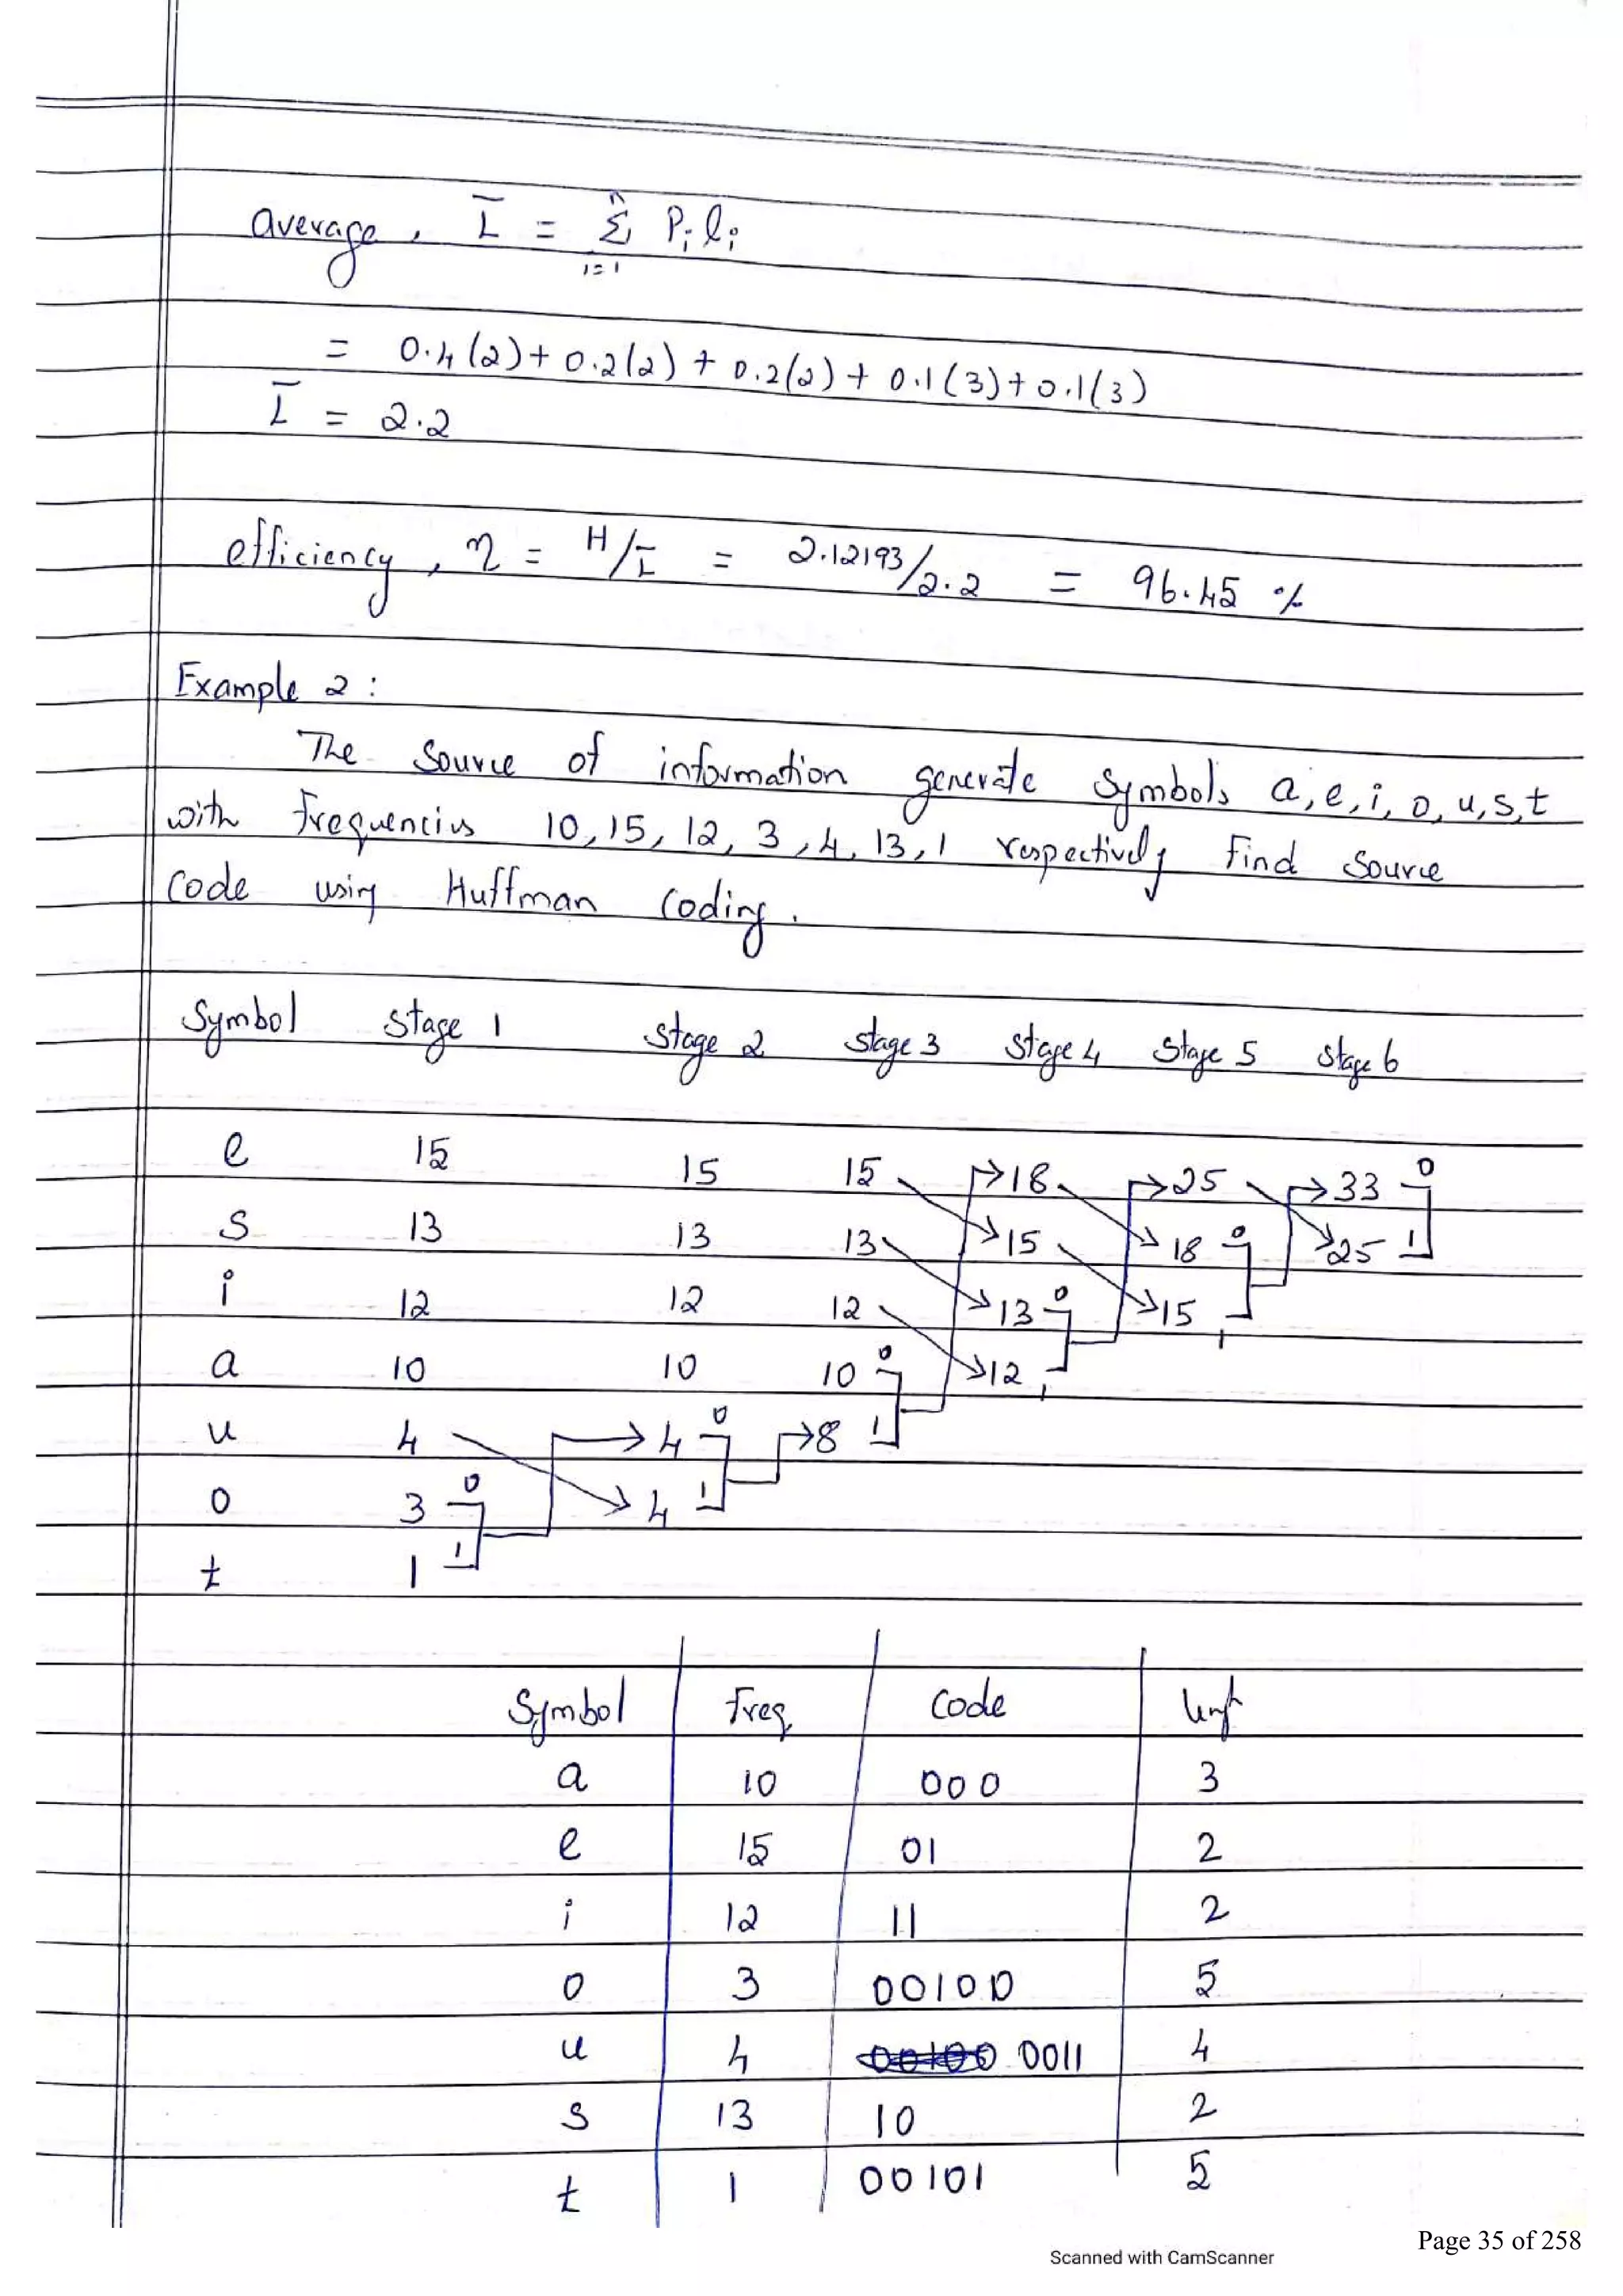 average, L̄ = Σ Pᵢ lᵢ
n
i=1
= 0.4(2)+ 0.2(2) + 0.2(2) + 0.1(3)+0.1(3)
L̄ = 2.2
efficiency, η = H/L̄ = 2.12193/2.2 = 96.45 %
Example 2 :
The source of information generate symbols a,e,i,o,u,s,t
with frequencies 10,15,12,3,4,13,1 respectively Find source
code using Huffman coding.
Symbol stage 1 stage 2 stage 3 stage 4 stage 5 stage 6
e 15 15 15 18 25 33 0
s 13 13 13 15 18 0 25 1
i 12 12 12 13 0 15 1
a 10 10 10 0 12 1
u 4 4 0 8 1
o 3 0 4 1
t 1 1
Symbol Freq. Code
a 10 000 3
e 15 01 2
i 12 11 2
o 3 00100 5
u 4 00100 0011 4
s 13 10 2
t 1 00101 5
Page 35 of 258
Scanned with CamScanner